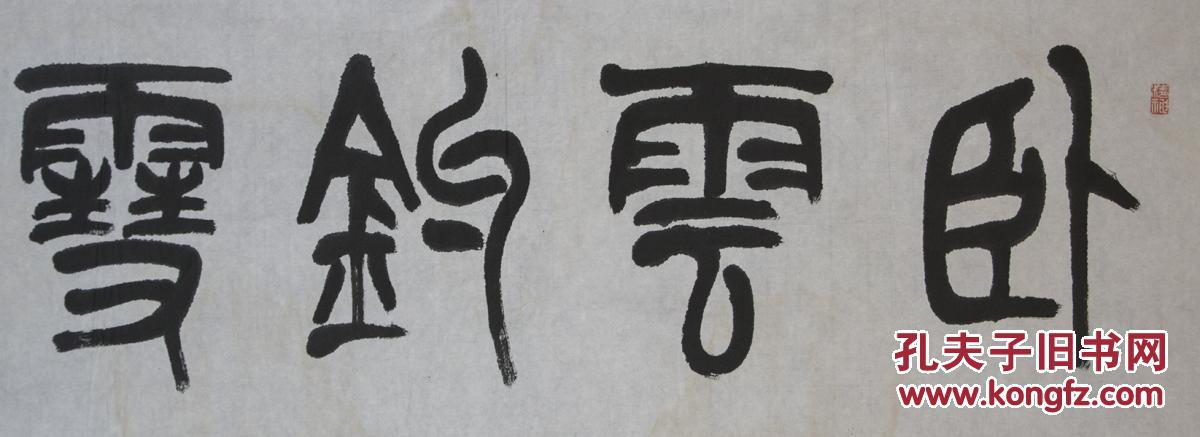 卧雲釣雪
孔夫子旧书网
www.kongfz.com